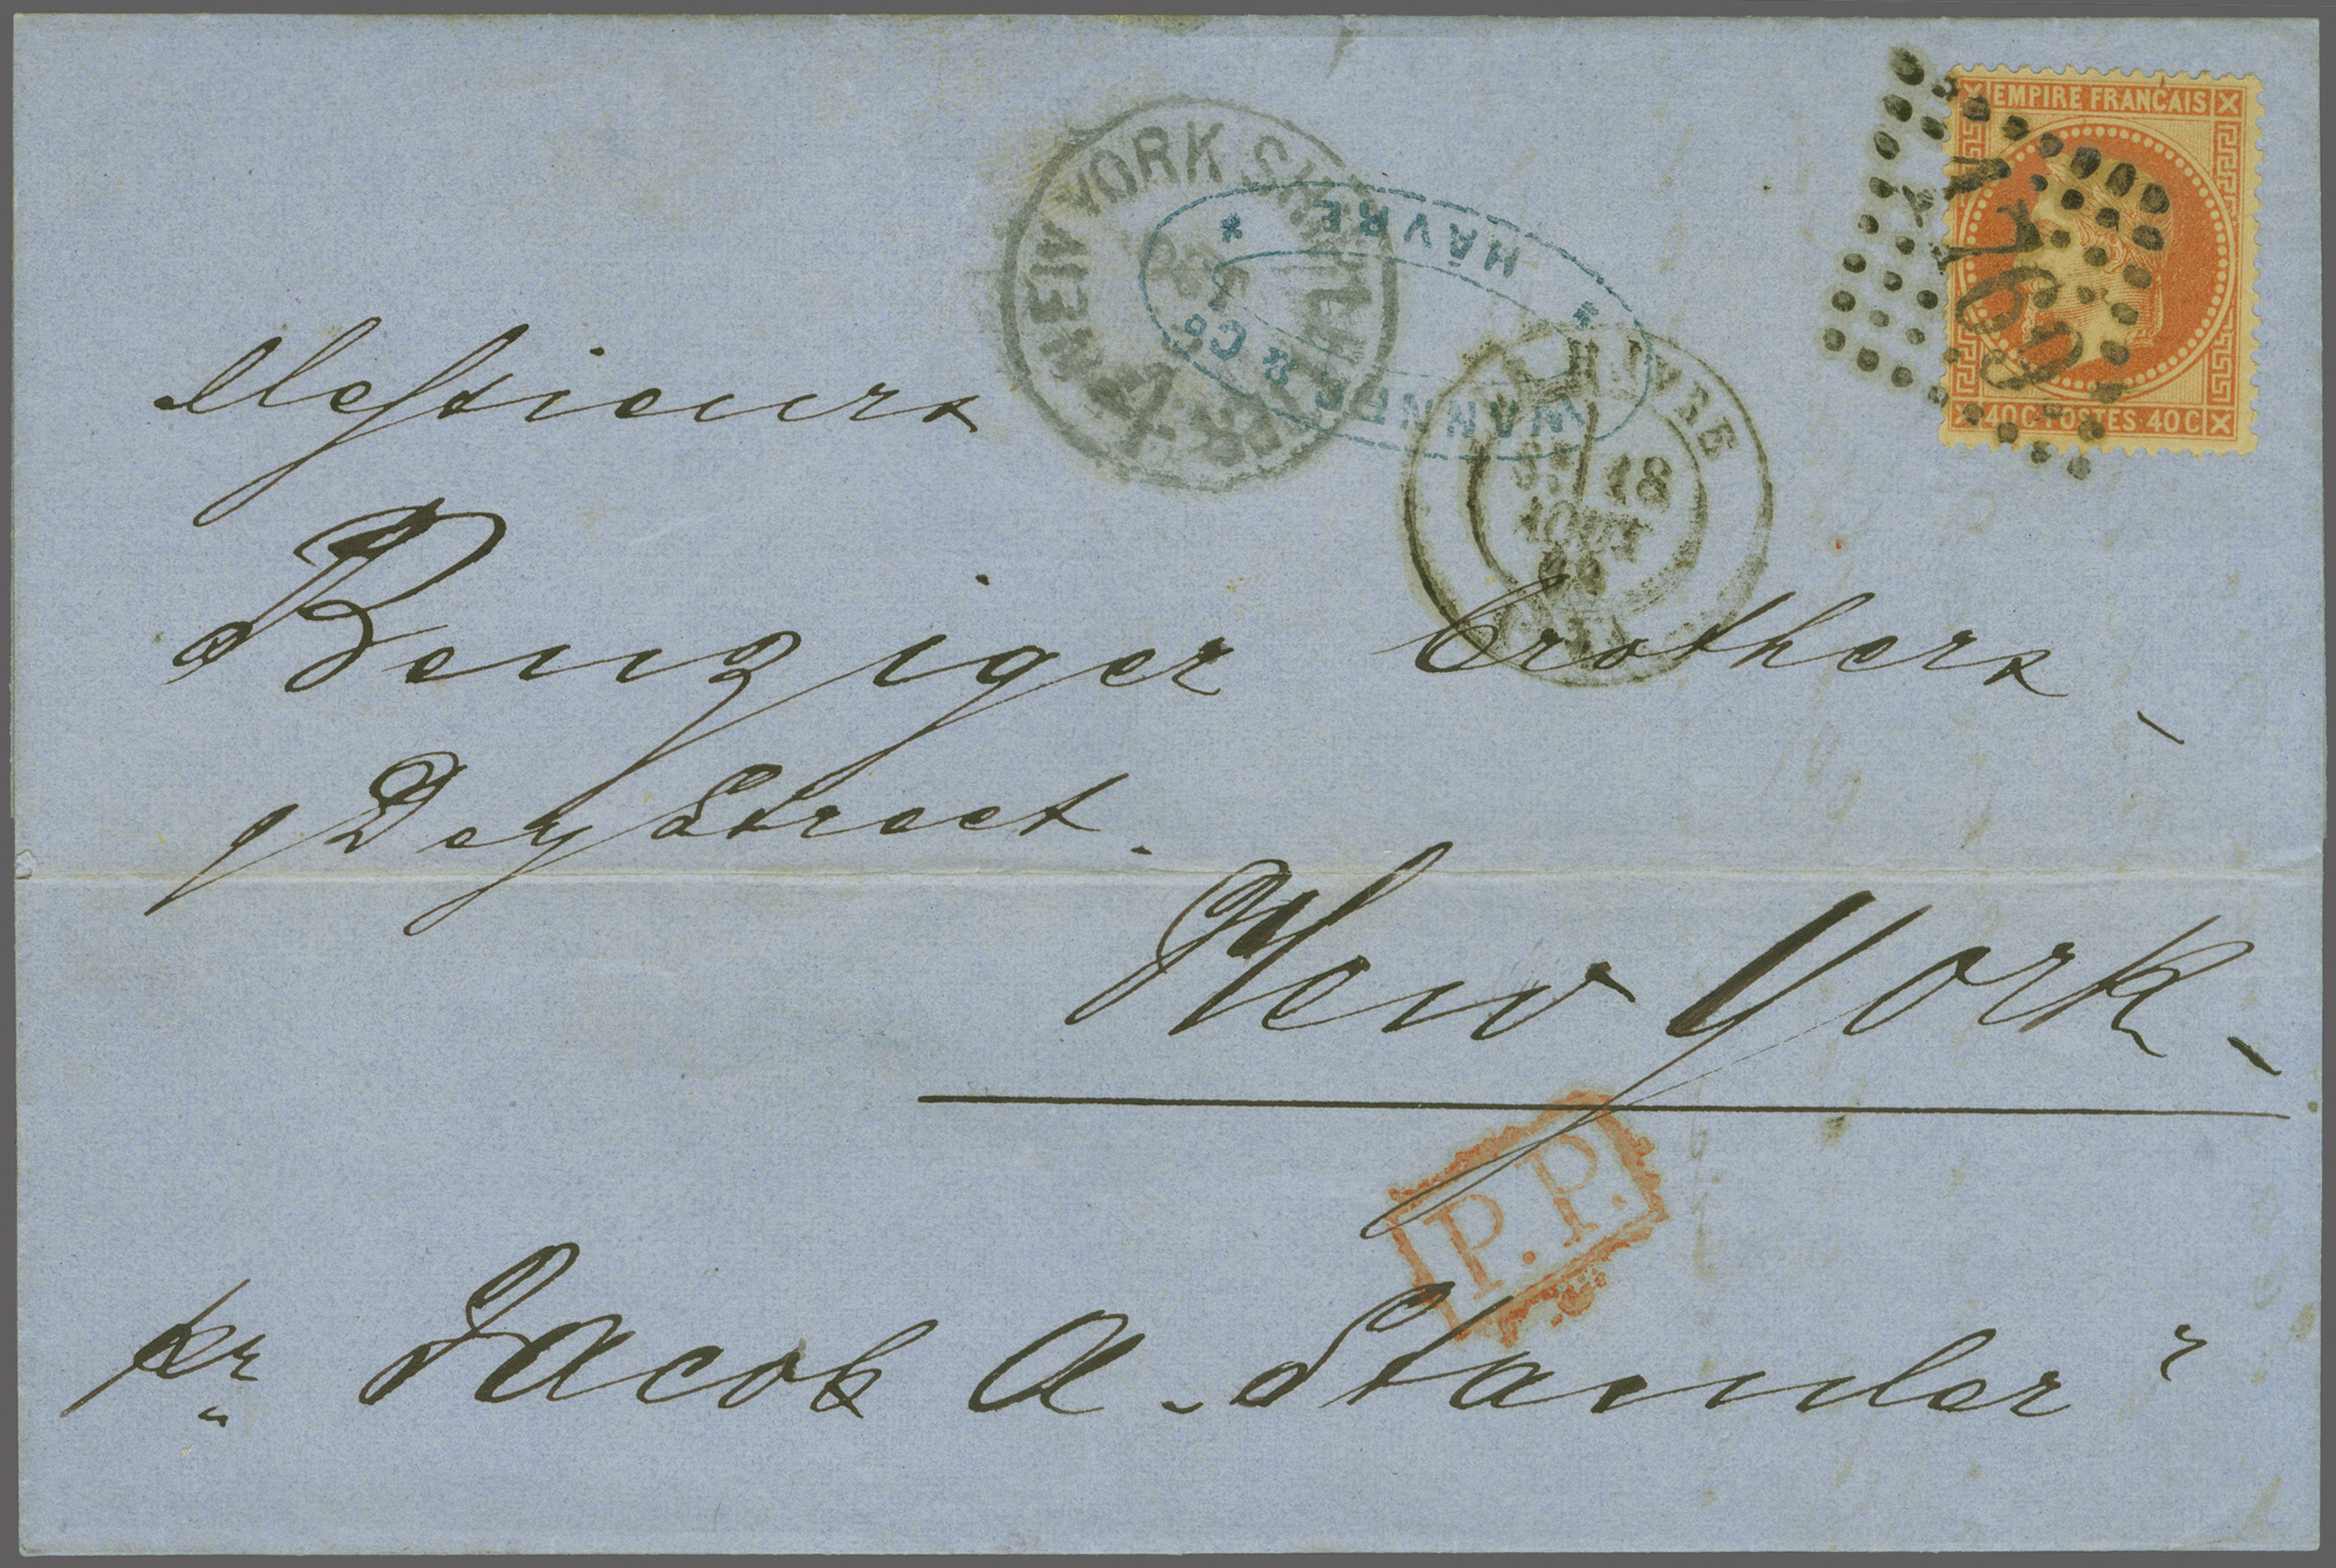 EMPIRE FRANCAIS
40 C · POSTES · 40 C
1769
NEW YORK SHIP
HÂVRE
WANNER & Cº
18
AOUT
Messieurs
Benziger brothers
Dey Street.
New York
P.P.
pr Jacob A. Stamler"